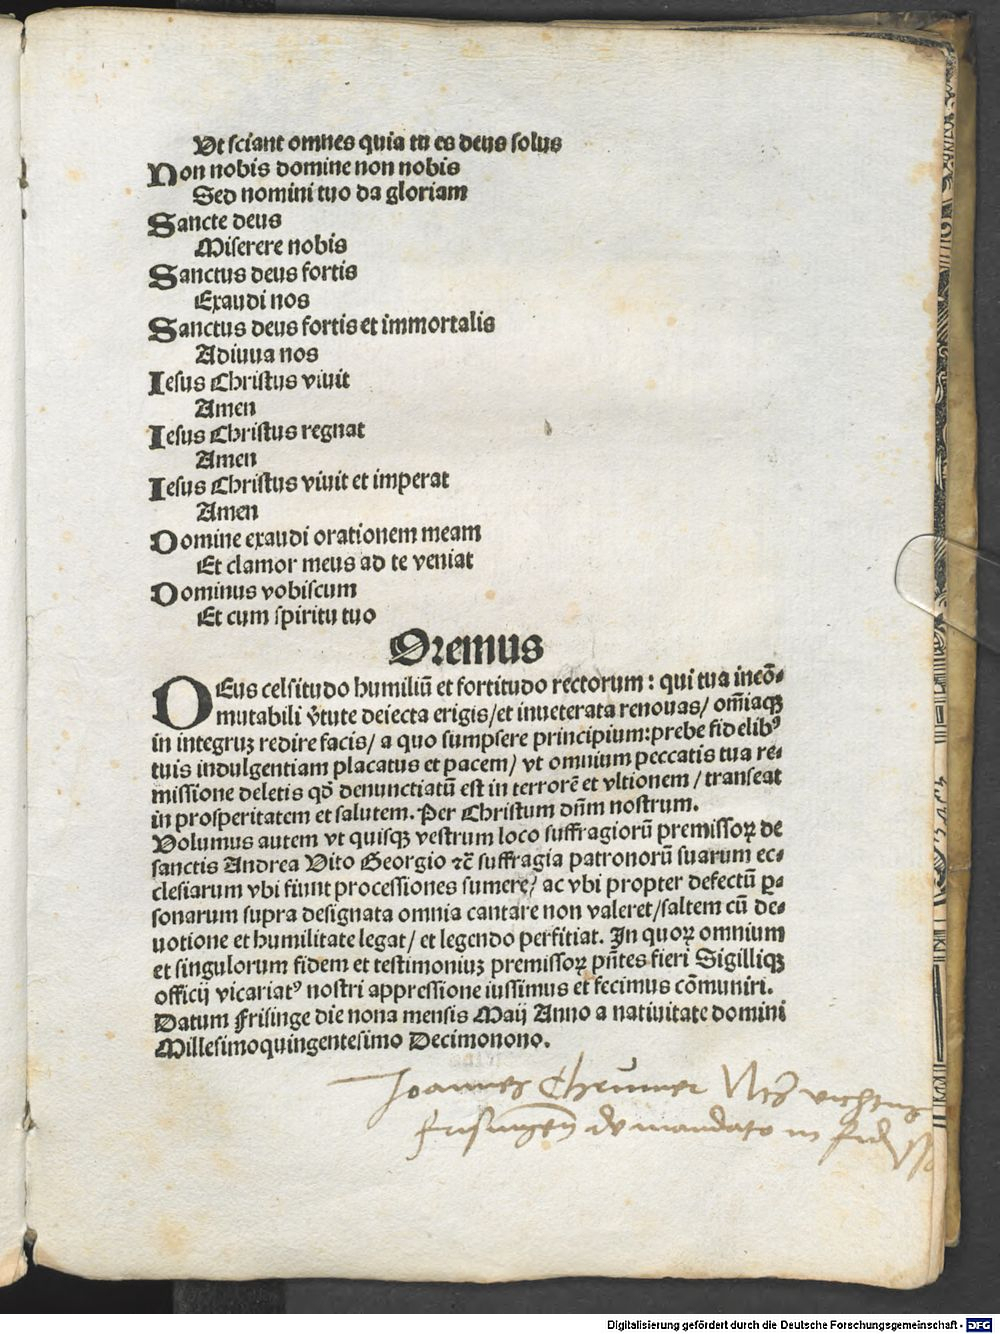 Vt sciant omnes quia tu es deus solus
Non nobis domine non nobis
Sed nomini tuo da gloriam
Sancte deus
Miserere nobis
Sanctus deus fortis
Exaudi nos
Sanctus deus fortis et immortalis
Adiuua nos
Iesus Christus viuit
Amen
Iesus Christus regnat
Amen
Iesus Christus viuit et imperat
Amen
Domine exaudi orationem meam
Et clamor meus ad te veniat
Dominus vobiscum
Et cum spiritu tuo
Oremus
DEus celsitudo humiliū et fortitudo rectorum: qui tua incō-
mutabili v̄tute deiecta erigis/et inueterata renouas/ om̄iaqꝫ
in integruꝫ redire facis/ a quo sumpsere principium:prebe fidelibꝰ
tuis indulgentiam placatus et pacem/ vt omnium peccatis tua re-
missione deletis qđ denunctiatū est in terrorē et vltionem/ transeat
in prosperitatem et salutem. Per Christum dn̄m nostrum.
Volumus autem vt quisqꝫ vestrum loco suffragiorū premissoꝝ de
sanctis Andrea Vito Georgio ⁊c̄ suffragia patronorū suarum ec-
clesiarum vbi fiunt processiones sumere/ ac vbi propter defectū ꝑ-
sonarum supra designata omnia cantare non valeret/saltem cū de-
uotione et humilitate legat/ et legendo perfitiat. In quoꝝ omnium
et singulorum fidem et testimoniuꝫ premissoꝝ pn̄tes fieri Sigilliqꝫ
officij vicariatꝰ nostri appressione iussimus et fecimus cōmuniri.
Datum Frisinge die nona mensis Maij Anno a natiuitate domini
Millesimoquingentesimo Decimonono.
Joannes
frisingen̄ de mandato in fidē
Digitalisierung gefördert durch die Deutsche Forschungsgemeinschaft - DFG